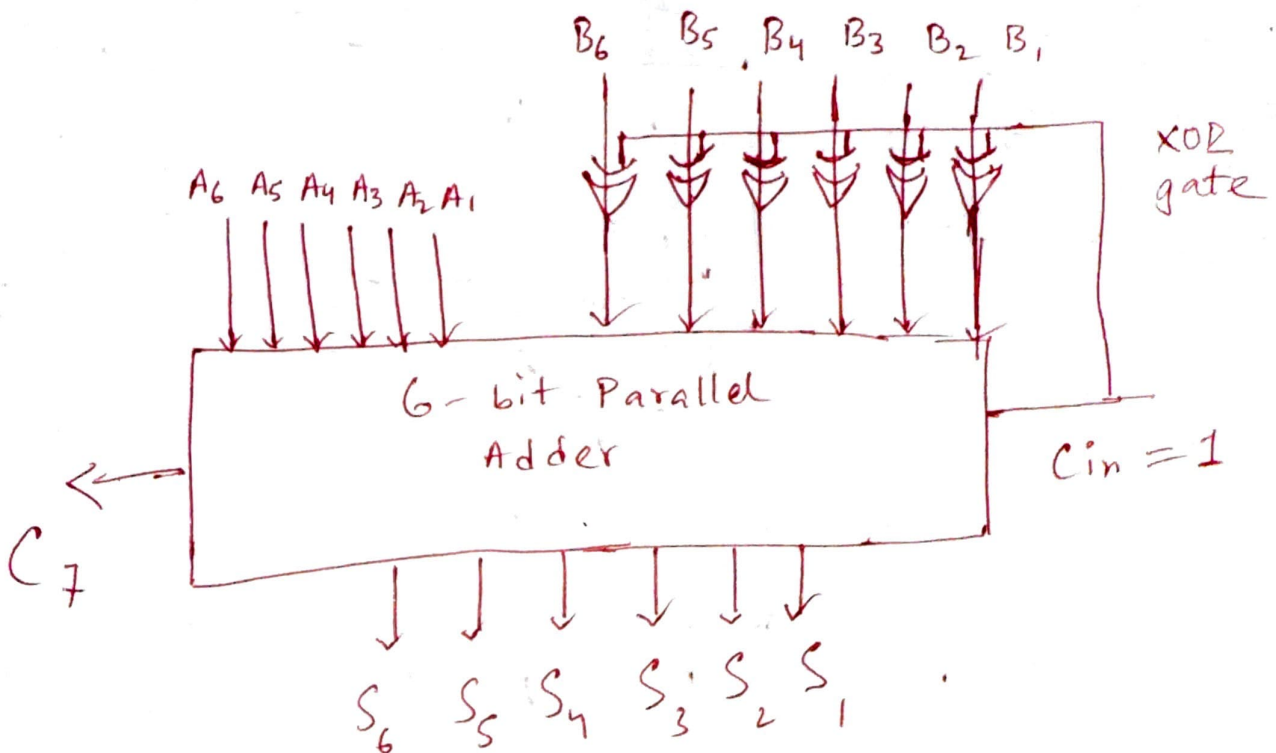 B6 B5 B4 B3 B2 B1
XOR
gate
A6 A5 A4 A3 A2 A1
6-bit Parallel
Adder
Cin = 1
C7
S6 S5 S4 S3 S2 S1